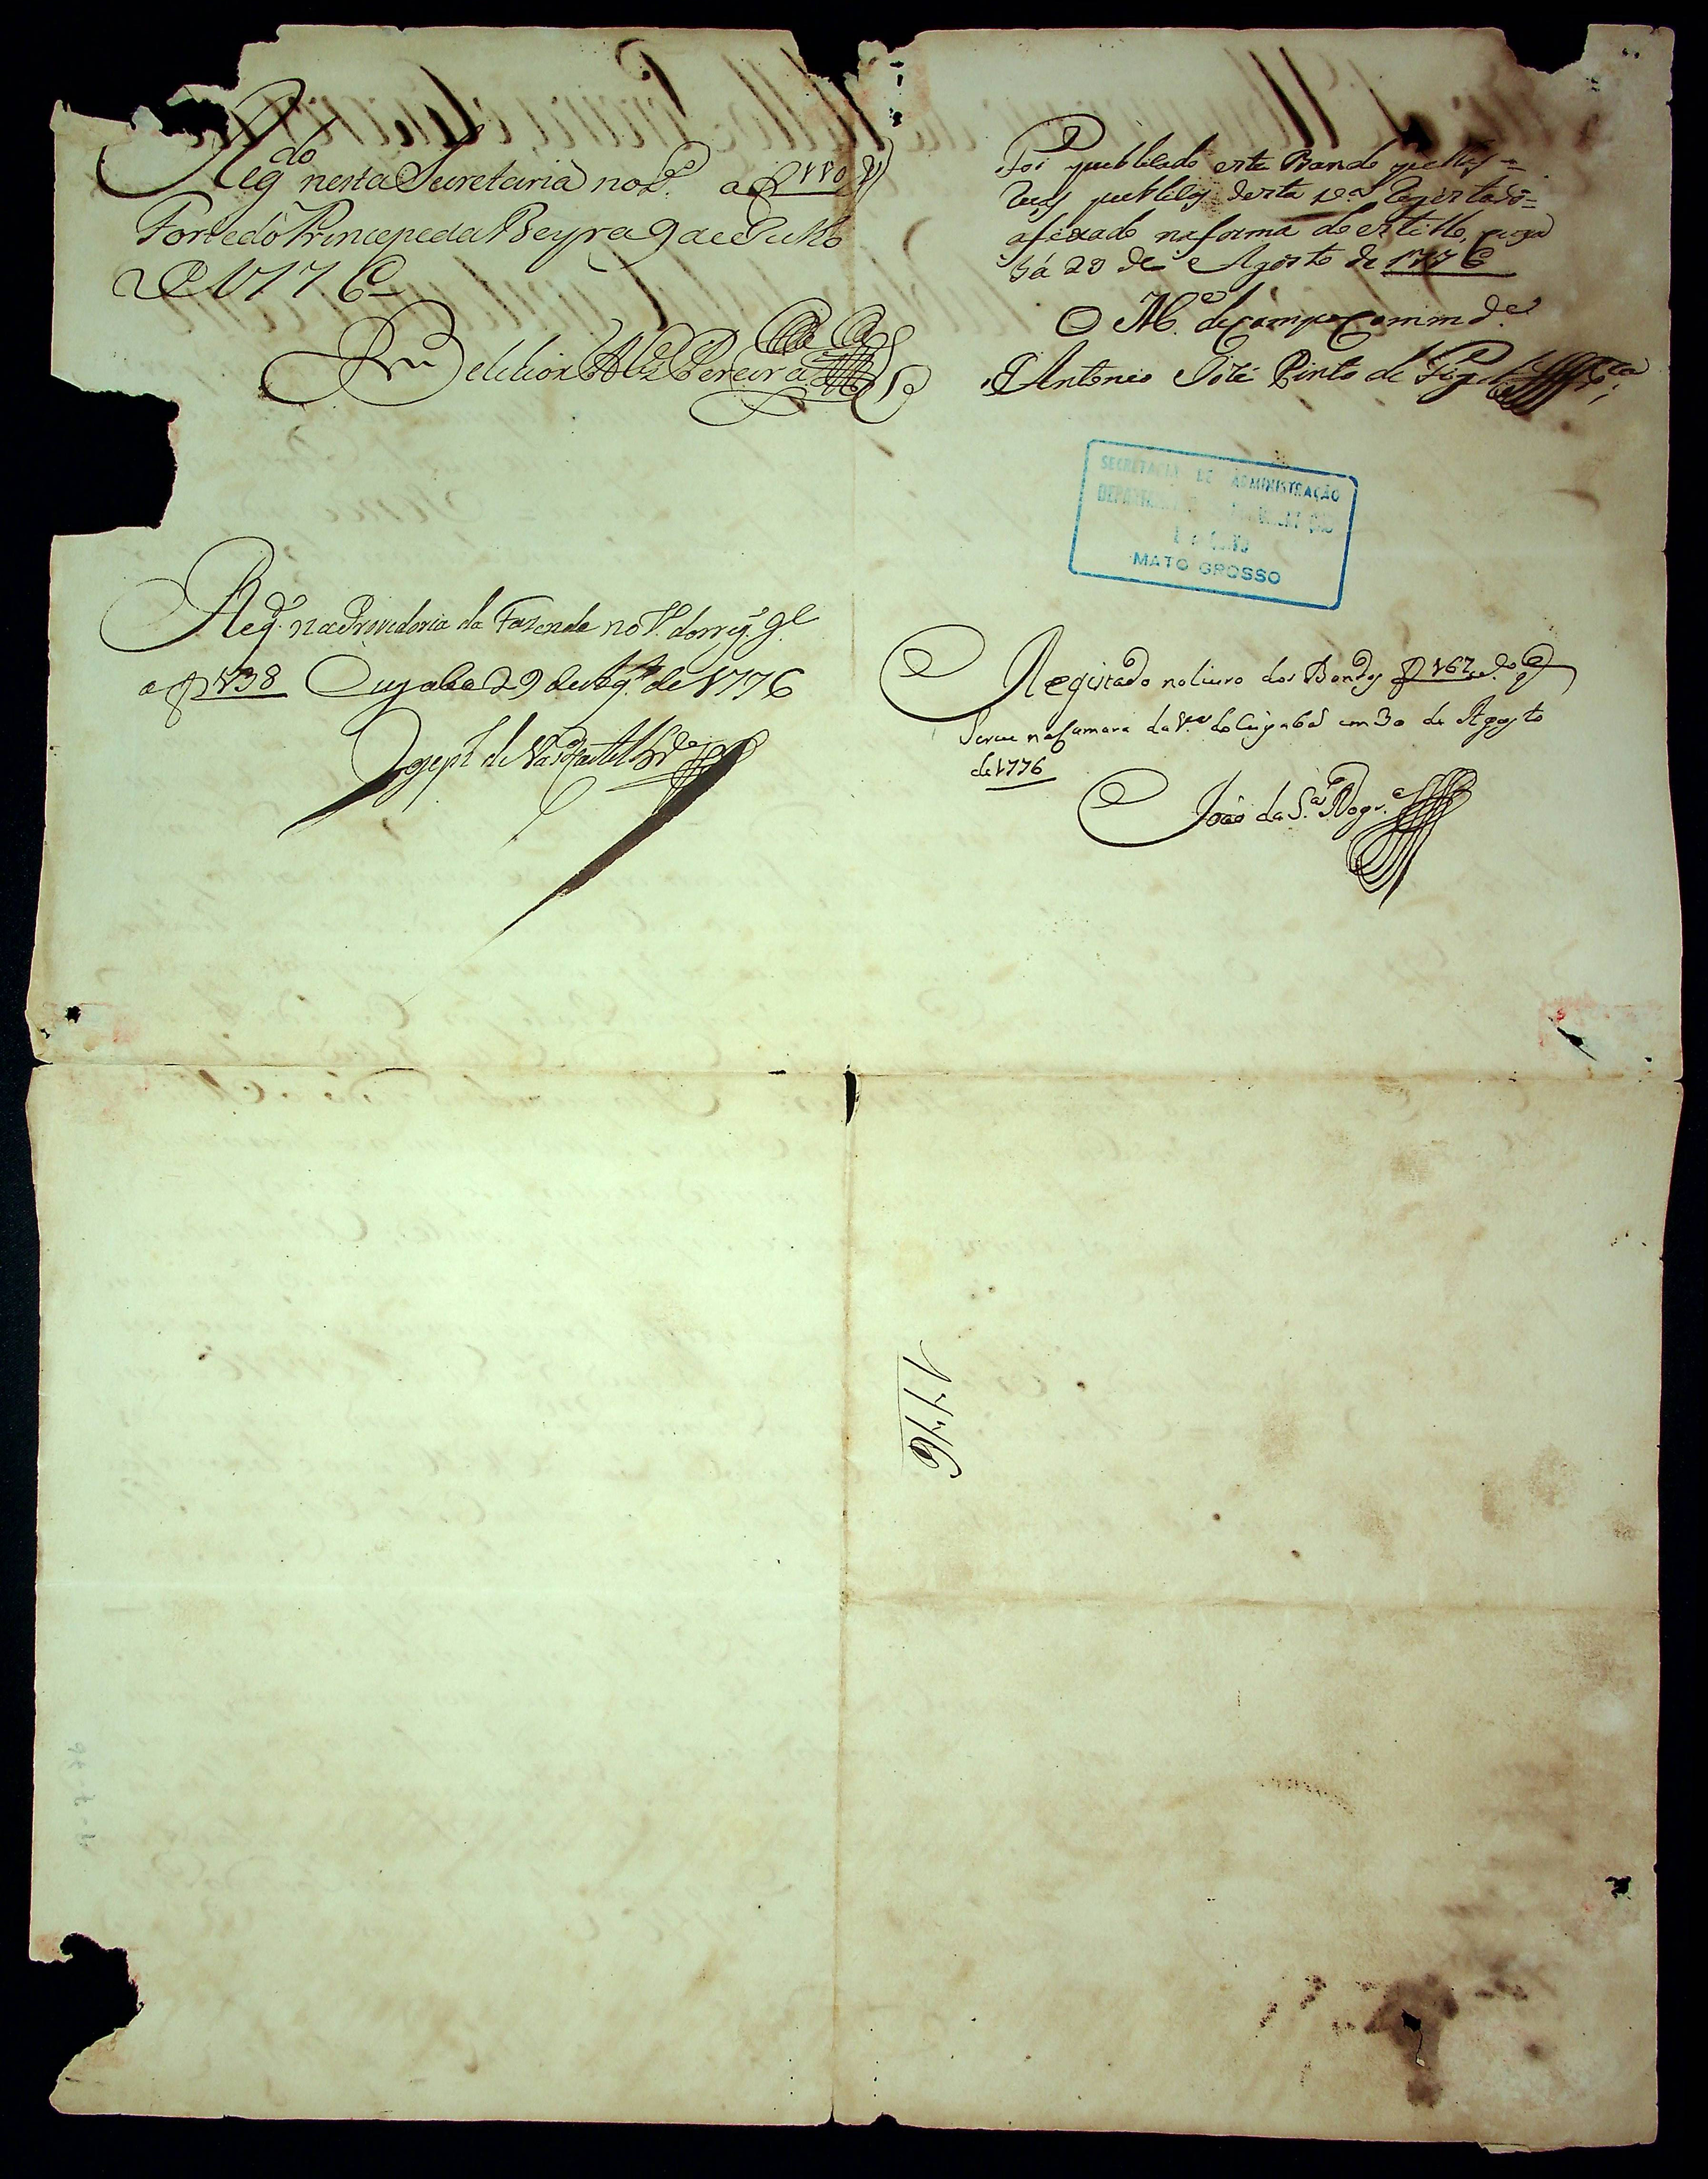 Reg.do nesta Secretaria no L.º a f 110 V
Forte do Princepe da Beyra 9 de Julho
de 1776
Belchior Alz Pereira
Foi pubblicado este Bando pellas =
ruas publicas desta v.ª e registado =
afixado na forma do estillo, Cuya
bá 29 de Agosto de 1776
O M.e de campo Comm.de
Antonio José Pinto de Fig.do
SECRETARIA DE ADMINISTRAÇÃO
MATO GROSSO
Reg.º na Provedoria da Fazenda no L.º do reg.º g.l
a f 138 Cuyaba 29 de Ag.to de 1776
Joseph de
Registado no livro dos Bandos f 162 q
serve na Camara da V.ª do Cuyabá em 30 de Agosto
de 1776
João da S.ª Nogr.ª
1776